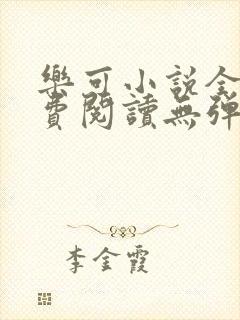 樂可小說全
費閱讀無彈
李金霞